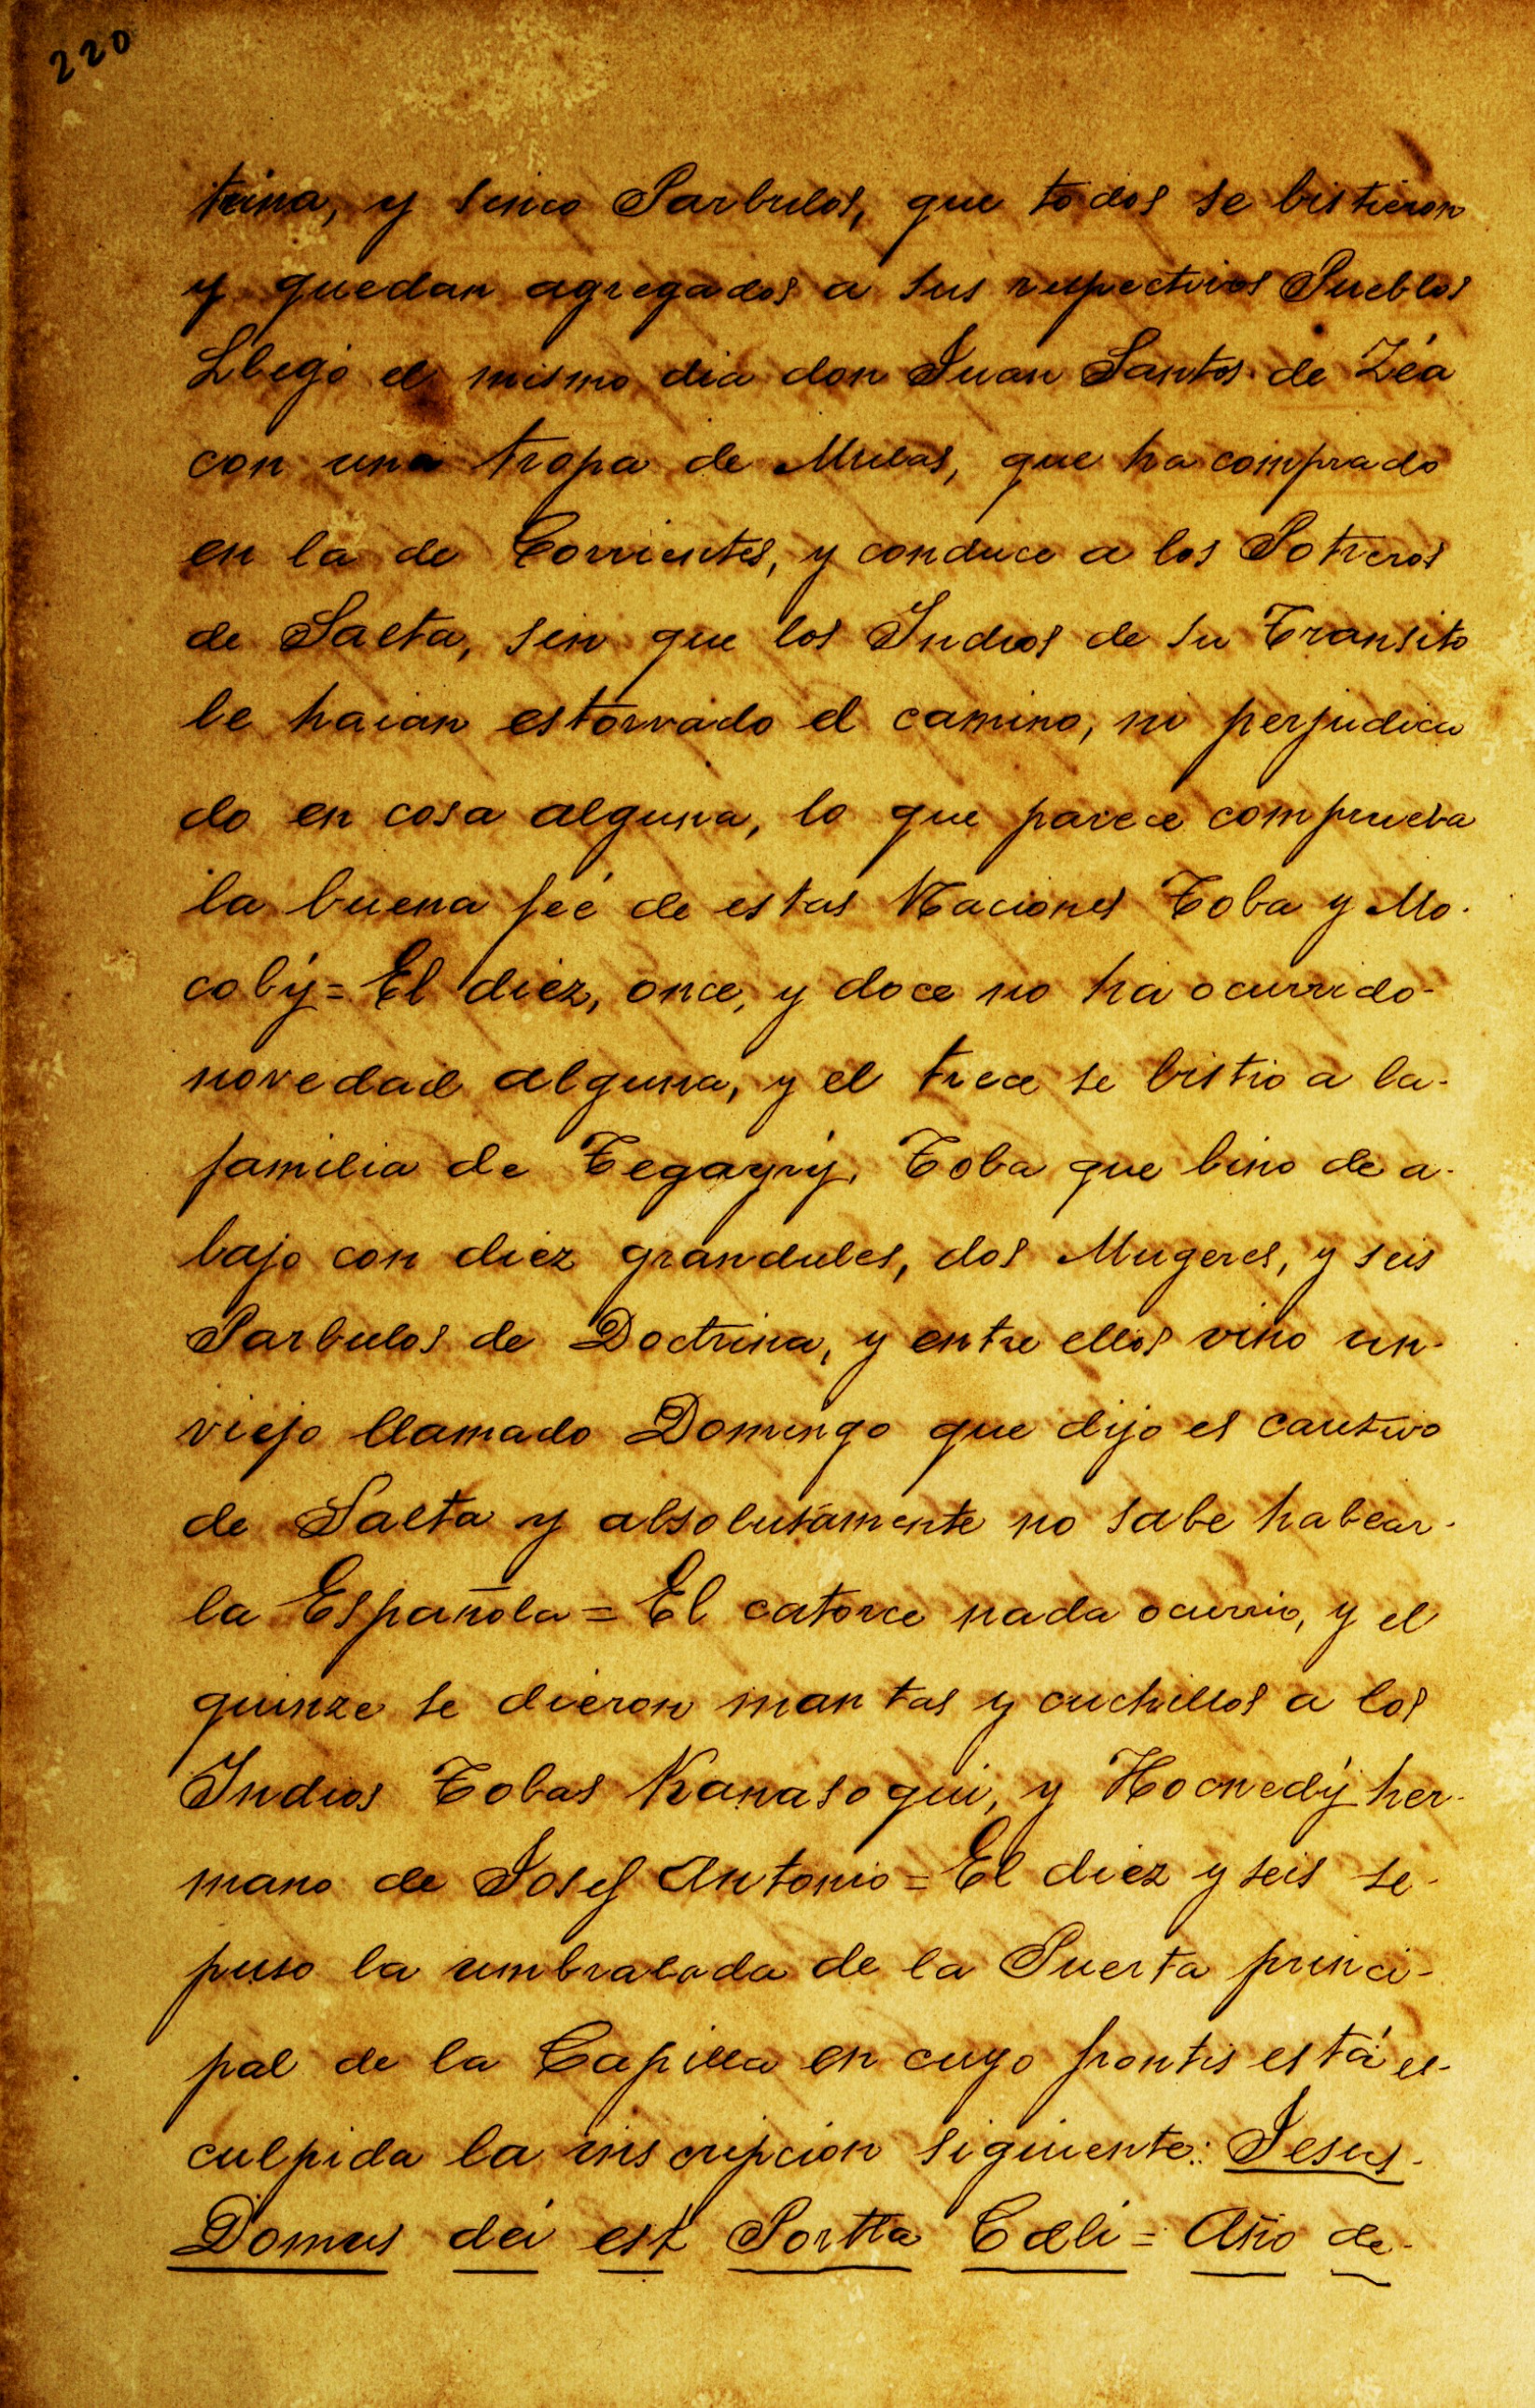 220
trina, y sinco Parbulos, que todos se bistieron
y quedan agregados a sus respectivos Pueblos
Llegó el mismo dia don Juan Santos de Zéa
con una tropa de Mulas, que ha comprado
en la de Corrientes, y conduce a los Potreros
de Salta, sin que los Indios de su Transito
le haian estorvado el camino, ni perjudica
do en cosa alguna, lo que parece comprueba
la buena feé de estas Naciones Toba y Mo-
coby = El diez, once, y doce no ha ocurrido-
novedad alguna, y el trece se bistio a la-
familia de Tegayrý, Toba que bino de a-
bajo con diez grandules, dos Mugeres, y seis
Parbulos de Doctrina, y entre ellos vino un-
viejo llamado Domingo que dijo es cautivo
de Salta y absolutamente no sabe hablar-
la Española = El catorce nada ocurrio, y el
quinze se dieron mantas y cuchillos a los
Indios Tobas Kanasoqui, y Hocnedý her-
mano de Josef Antonio = El diez y seis se-
puso la umbralada de la Puerta princi-
pal de la Capilla en cuyo frontis está es-
culpida la inscripcion siguiente: Jesus-
Domus dei est Portta Cæli = Año de-